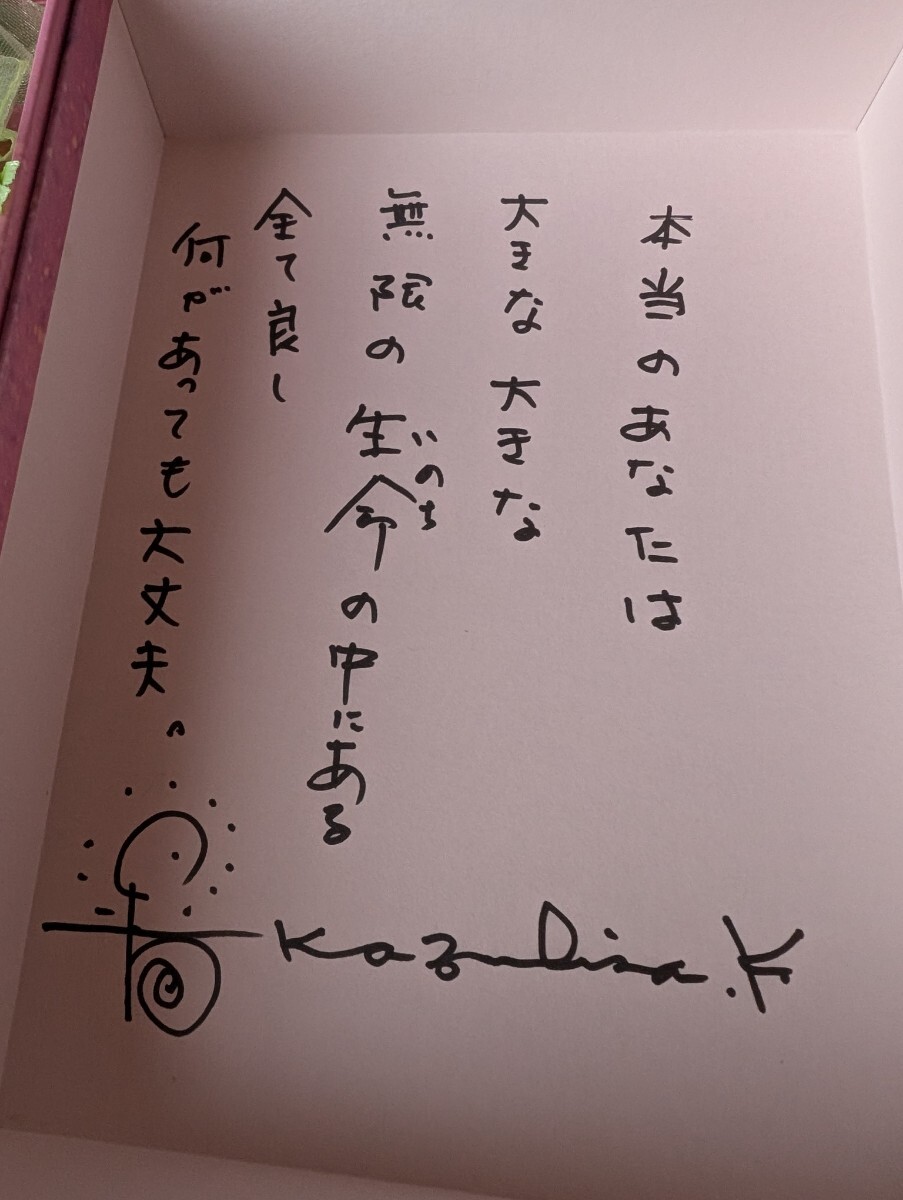 本当のあなたは
大きな大きな
無限の生命の中にある
いのち
全て良し
何があっても大丈夫。
Kazuhisa.K